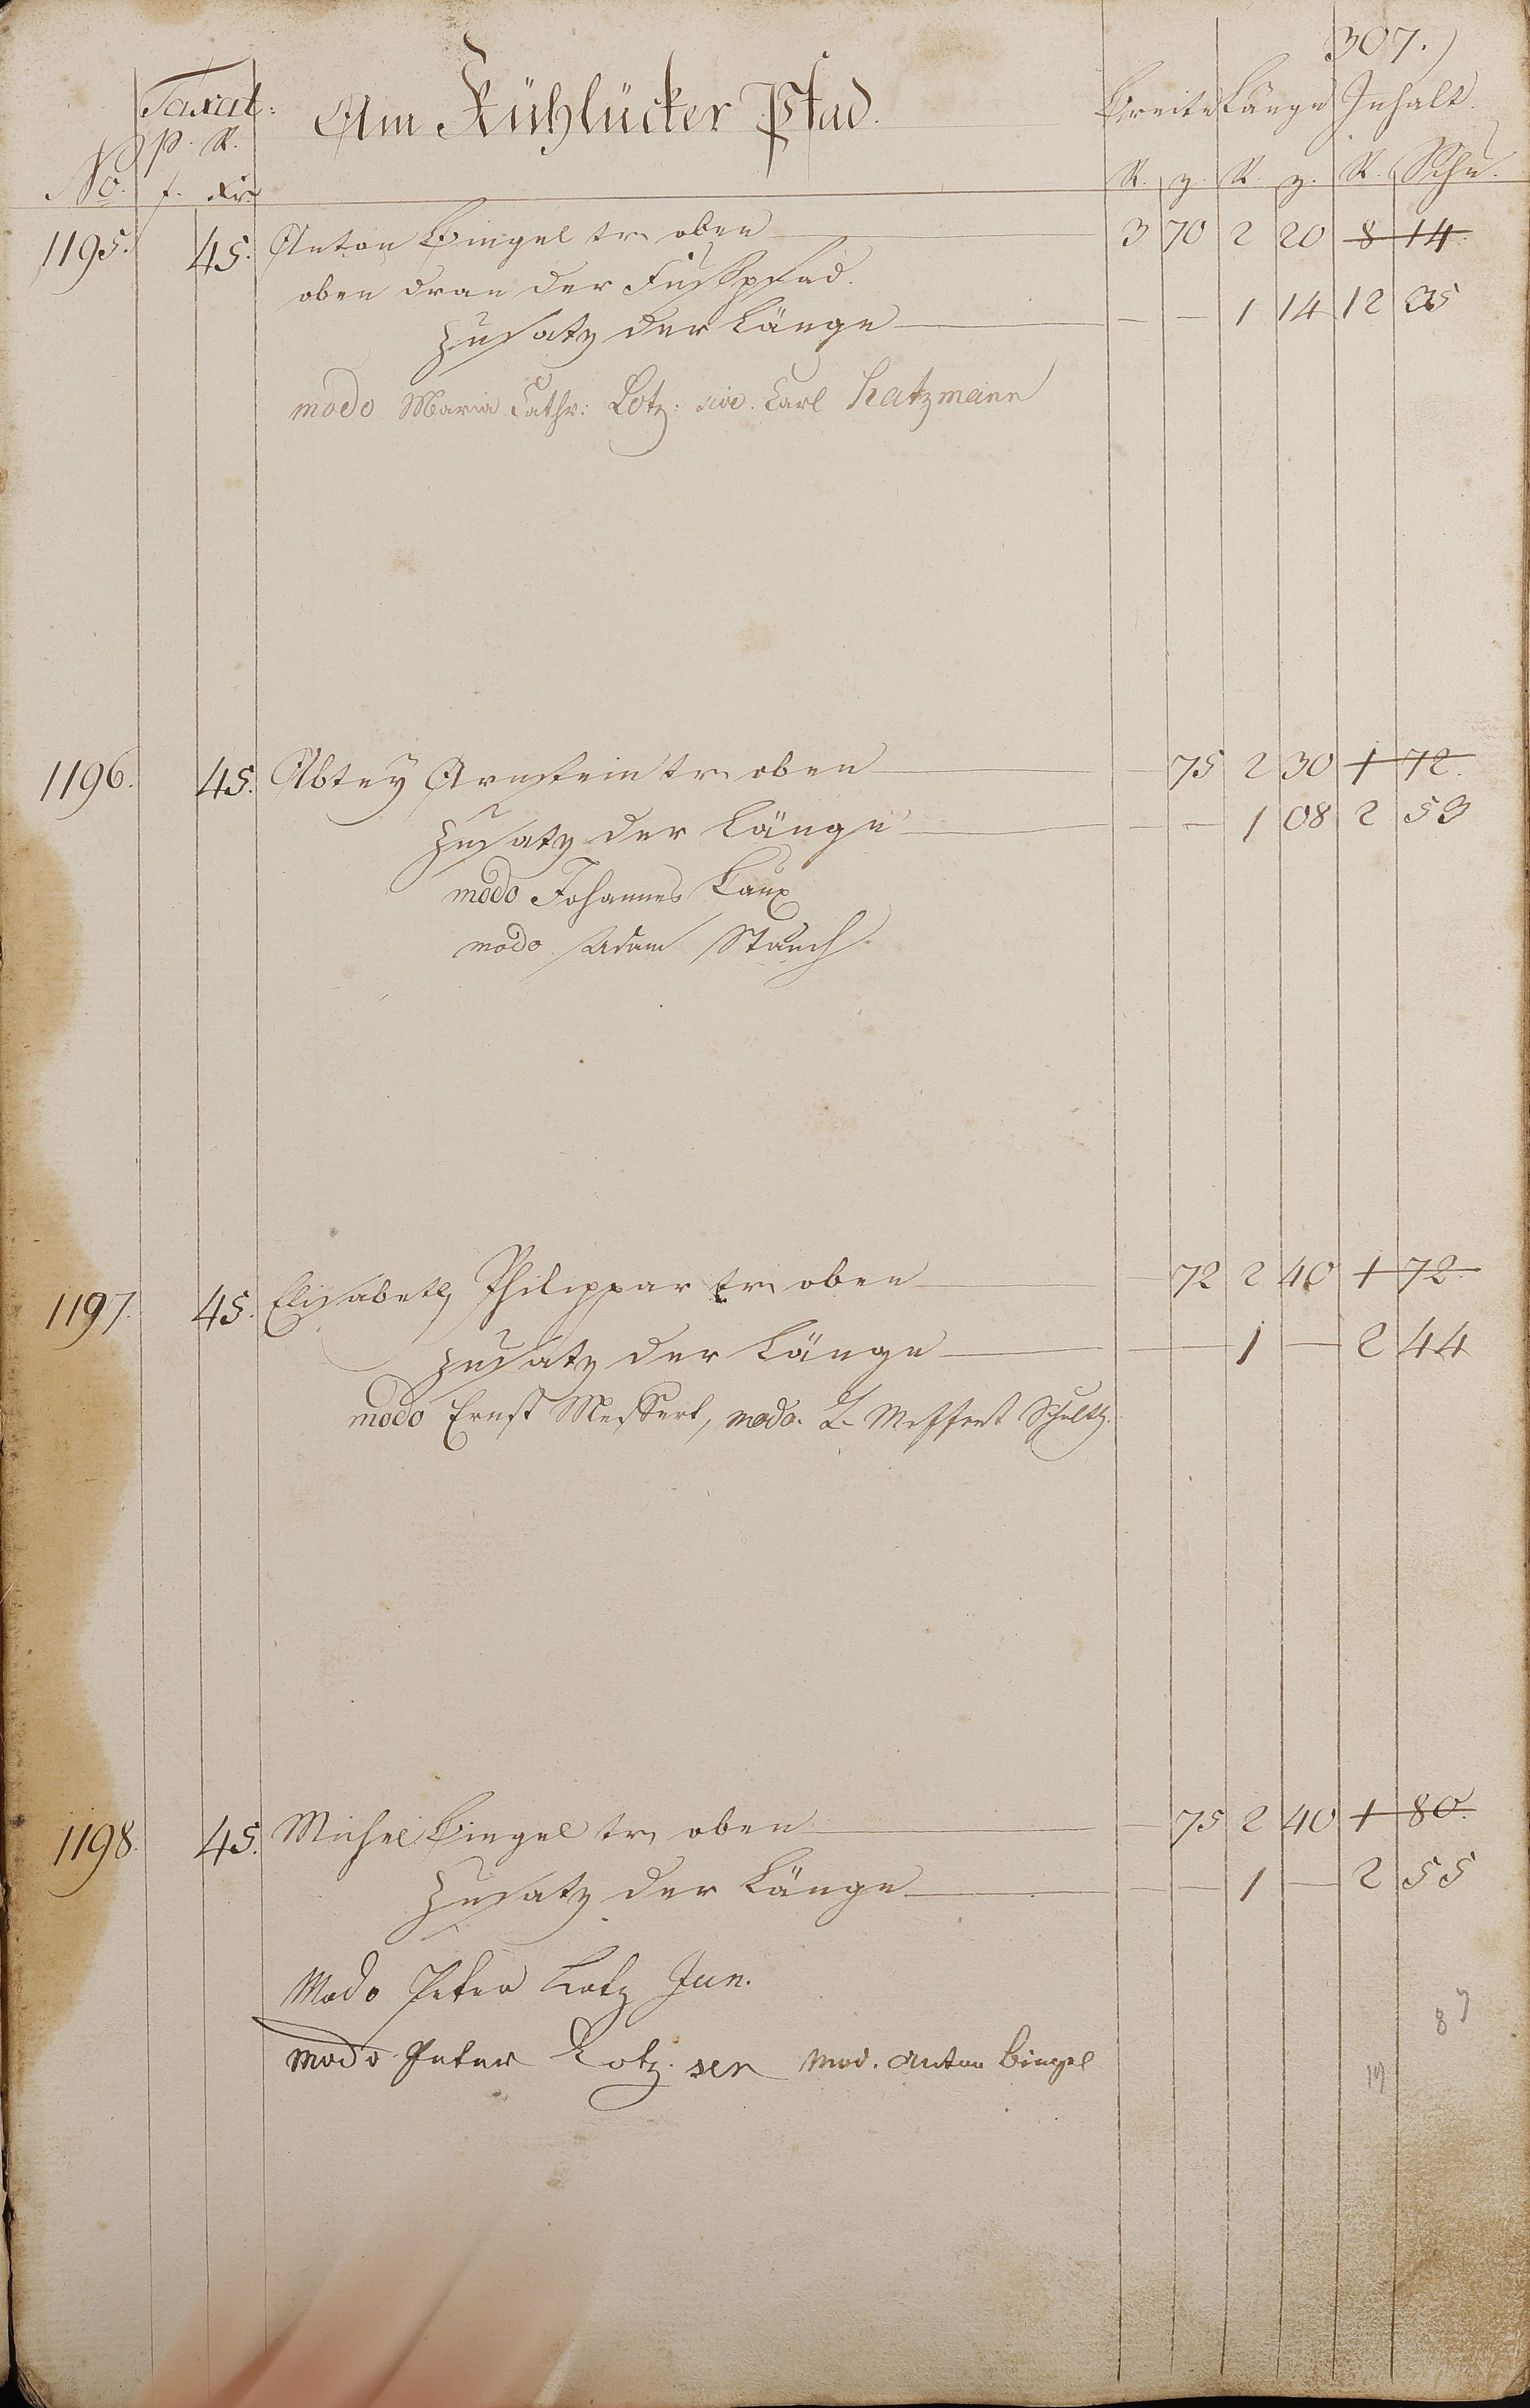 307.)
Taxat: Am Kühlücker Pfad. Breite Länge Inhalt.
p. R.
No. f. Kr. R. z. R. z. R. Schu.
1195. 45. Anton Bingel tr. oben 3 70 2 20 8 14.
oben dran der Fußpfad.
Zusatz der Länge — — 1 14 12 35
modo Maria Cathr: Lotz: Carl Hatzmann
1196. 45. Abtey Arnstein tr. oben 75 2 30 1 72.
Zusatz der Länge — — 1 08 2 53
modo Johannes Laux
modo Adam Stauch
1197. 45. Elisabeth Philippar tr. oben — 72 2 40 1 72.
Zusatz der Länge — — 1 — 2 44
modo Ernst Meffert, modo. L. Meffert Schultz.
1198. 45. Michel Bingel tr. oben — 75 2 40 1 80.
Zusatz der Länge — — 1 — 2 55
Modo Peter Lotz Jun.
modo Peter Lotz. sen mod. Anton Bingel